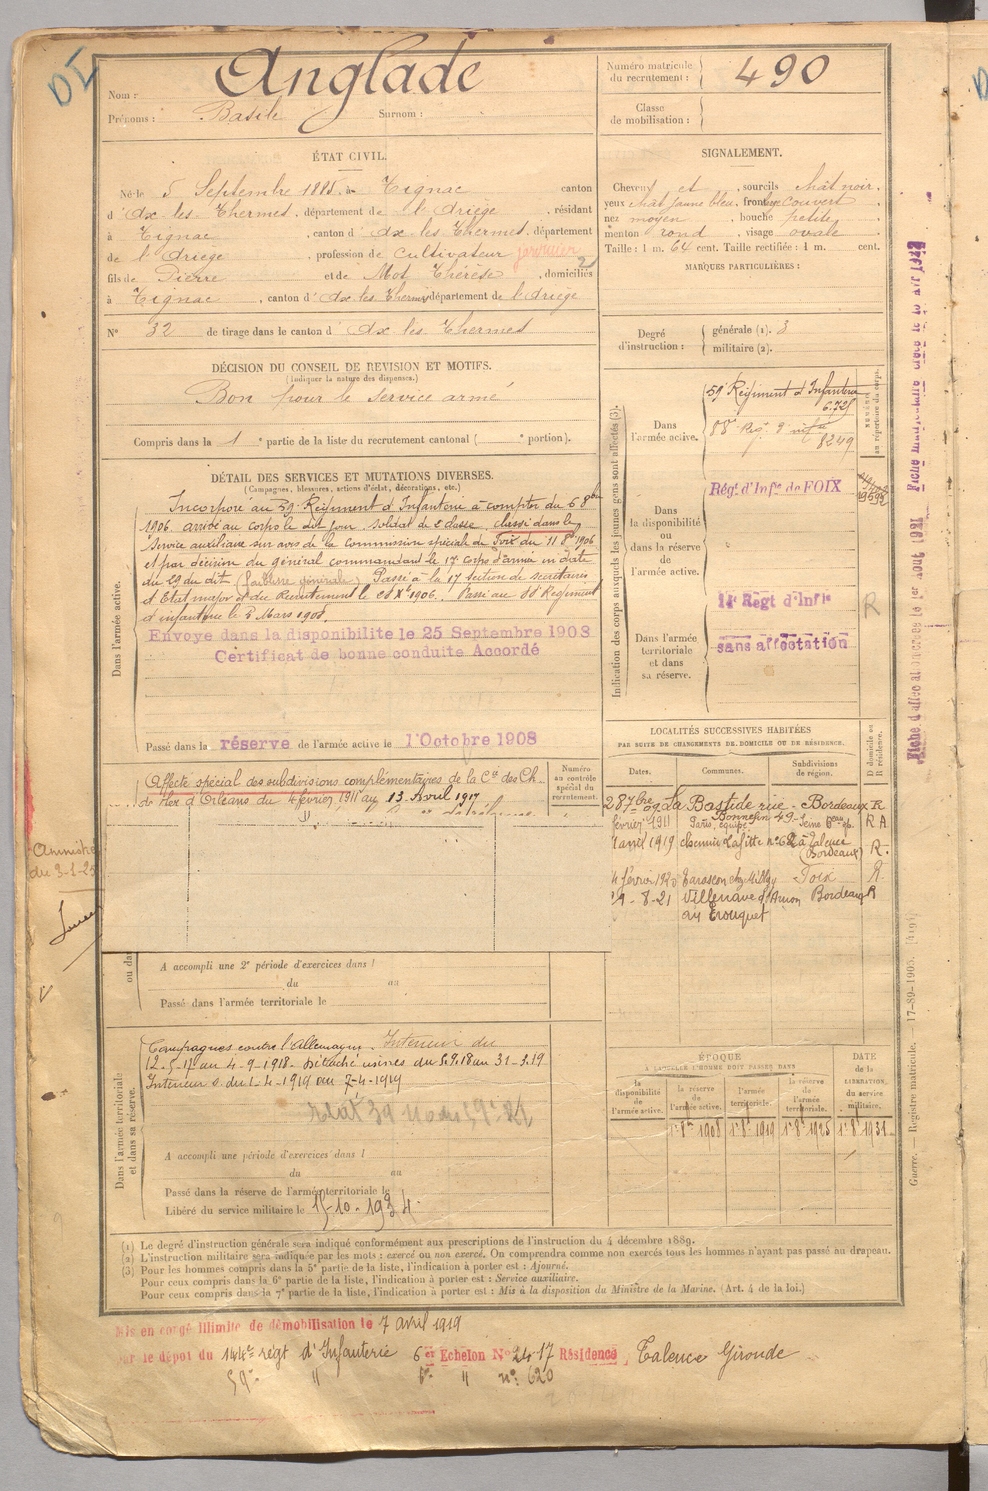 DE
Nom : Anglade
Prénoms : Basile Surnom :
Numéro matricule du recrutement : 490
Classe de mobilisation :
ÉTAT CIVIL.
Né le 5 Septembre 1885, à Tignac canton
d'Ax les Thermes, département de l'Ariège, résidant
à Tignac, canton d'Ax les Thermes, département
de l'Ariège, profession de Cultivateur
fils de Pierre et de Mot Thérèse, domiciliés
à Tignac, canton d'Ax les Thermes, département de l'Ariège
N° 32 de tirage dans le canton d'Ax les Thermes
SIGNALEMENT.
Cheveux et , sourcils chât noir,
yeux chât jaune bleu, front couvert,
nez moyen, bouche petite,
menton rond, visage ovale
Taille : 1 m. 64 cent. Taille rectifiée : 1 m. cent.
MARQUES PARTICULIÈRES :
Degré d'instruction : générale (1). 3
militaire (2).
DÉCISION DU CONSEIL DE REVISION ET MOTIFS.
(Indiquer la nature des dispenses.)
Bon pour le service armé
Compris dans la 1e partie de la liste du recrutement cantonal ( e portion).
DÉTAIL DES SERVICES ET MUTATIONS DIVERSES.
(Campagnes, blessures, actions d'éclat, décorations, etc.)
Dans l'armée active.
Incorporé au 59e Régiment d'Infanterie à compter du 6 8bre
1906. arrivé au corps le dit jour soldat de 2e classe, classé dans le
service auxiliaire sur avis de la Commission spéciale de Foix du 11 8bre 1906
et par décision du général commandant le 17e corps d'armée en date
du 29 du dit (faiblesse générale) Passé à la 17e section de secrétaires
d'Etat major et du Recrutement le 1906. Passé au 88e Régiment
d'infanterie le 3 Mars 1908.
Envoyé dans la disponibilité le 25 Septembre 1908
Certificat de bonne conduite Accordé
Passé dans la réserve de l'armée active le 1 Octobre 1908
Indication des corps auxquels les jeunes gens sont affectés (3).
NUMÉRO au répertoire du corps.
Dans l'armée active.
59e Régiment d'Infanterie
6.725
88e Reg. d'infie
8249
Dans la disponibilité ou dans la réserve de l'armée active.
Régt d'Infie de FOIX
Dans l'armée territoriale et dans sa réserve.
14e Régt d'Infie
R
sans affectation
Affecté spécial des subdivisions complémentaires de la Cie des Ch.
de Fer d'Orléans du 4 février 1911 au 13 Avril 1917
Numéro au contrôle spécial du recrutement.
Amnistié
du 3-1-25
A accompli une 2e période d'exercices dans l
du au
Passé dans l'armée territoriale le
LOCALITÉS SUCCESSIVES HABITÉES
PAR SUITE DE CHANGEMENTS DE DOMICILE OU DE RÉSIDENCE.
Dates. Communes. Subdivisions de région. D domicile ou R résidence.
28 7bre 09 La Bastide rue Bonnefin 49 - Bordeaux R
février 1911 Paris R A
avril 1919 chemin Lafitte n° 62 à Talence (Bordeaux) R.
4 février 1920 Tarascon chez Foix R
- 8 - 21 Villenave d'Ornon Bordeaux R
Dans l'armée territoriale et dans sa réserve.
Campagnes contre l'Allemagne. Intérieur du
12-5-17 au 4-9-1918. Détaché usines du 5.9.18 au 31-3.19
Intérieur du 1-4-1919 au 7-4-1919
A accompli une période d'exercices dans l
du au
Passé dans la réserve de l'armée territoriale le
Libéré du service militaire le 15-10-1934.
ÉPOQUE
À LAQUELLE L'HOMME DOIT PASSER DANS
la disponibilité de l'armée active.
la réserve de l'armée active.
l'armée territoriale.
la réserve de l'armée territoriale.
DATE de la LIBÉRATION du service militaire.
1er 8bre 1908 1er 8bre 1919 1er 8bre 1925 1er 8bre 1931
(1) Le degré d'instruction générale sera indiqué conformément aux prescriptions de l'instruction du 4 décembre 1889.
(2) L'instruction militaire sera indiquée par les mots : exercé ou non exercé. On comprendra comme non exercés tous les hommes n'ayant pas passé au drapeau.
(3) Pour les hommes compris dans la 5e partie de la liste, l'indication à porter est : Ajourné.
Pour ceux compris dans la 6e partie de la liste, l'indication à porter est : Service auxiliaire.
Pour ceux compris dans la 7e partie de la liste, l'indication à porter est : Mis à la disposition du Ministre de la Marine. (Art. 4 de la loi.)
Guerre. — Registre matricule. — 17-89-1905. [419]
Mis en congé illimité de démobilisation le 7 avril 1919
par le dépot du 144e régt d'Infanterie 6er Echelon N° 2417 Résidence, Talence Gironde
59e " 6e " n° 620